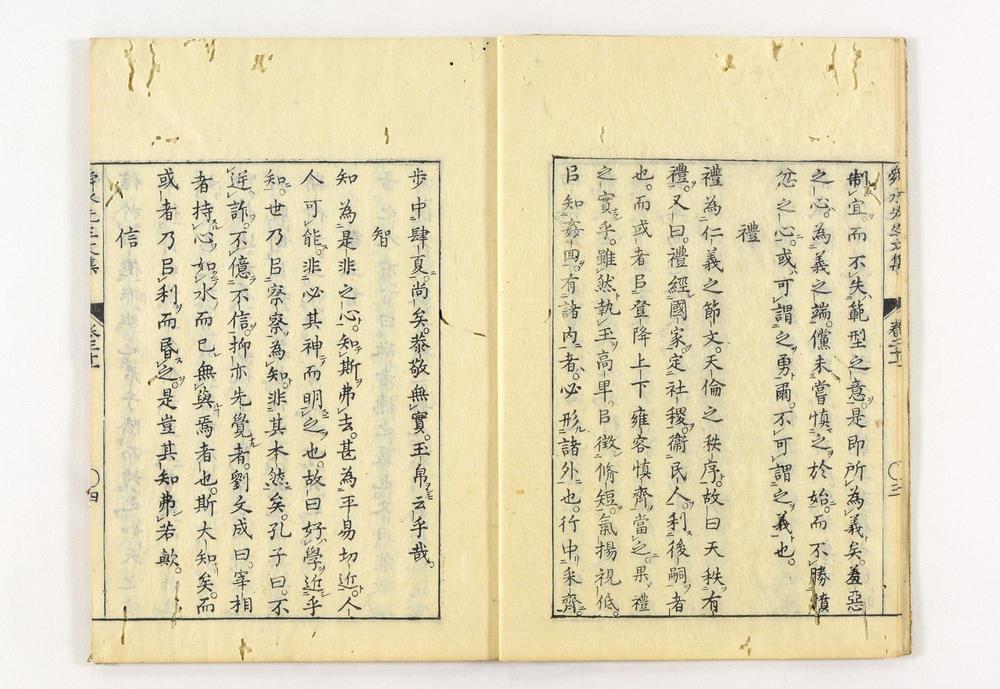 舜水先生文集 卷二十 三
制宜而不失範型之意是即所為義矣羞惡
之心為義之端儻未嘗慎之於始而不勝憤
忿之心或可謂之勇爾不可謂之義也
禮
禮為仁義之節文天倫之秩序故曰天秩有
禮又曰禮經國家定社稷衞民人利後嗣者
也而或者㠯登降上下雍容慎齊當之果禮
之實乎雖然執玉高卑㠯徵脩短氣揚視低
㠯知姦回有諸內者必形諸外也行中采齊
步中肆夏尚矣恭敬無實玉帛云乎哉
智
知為是非之心知斯弗去甚為平易切近人
人可能非必其神而明之也故曰好學近乎
知世乃㠯察察為知非其本然矣孔子曰不
逆詐不億不信抑亦先覺者劉文成曰宰相
者持心如水而已無與焉者也斯大知矣而
或者乃㠯利而昬之是豈其知弗若歟
信
舜水先生文集 卷二十 四